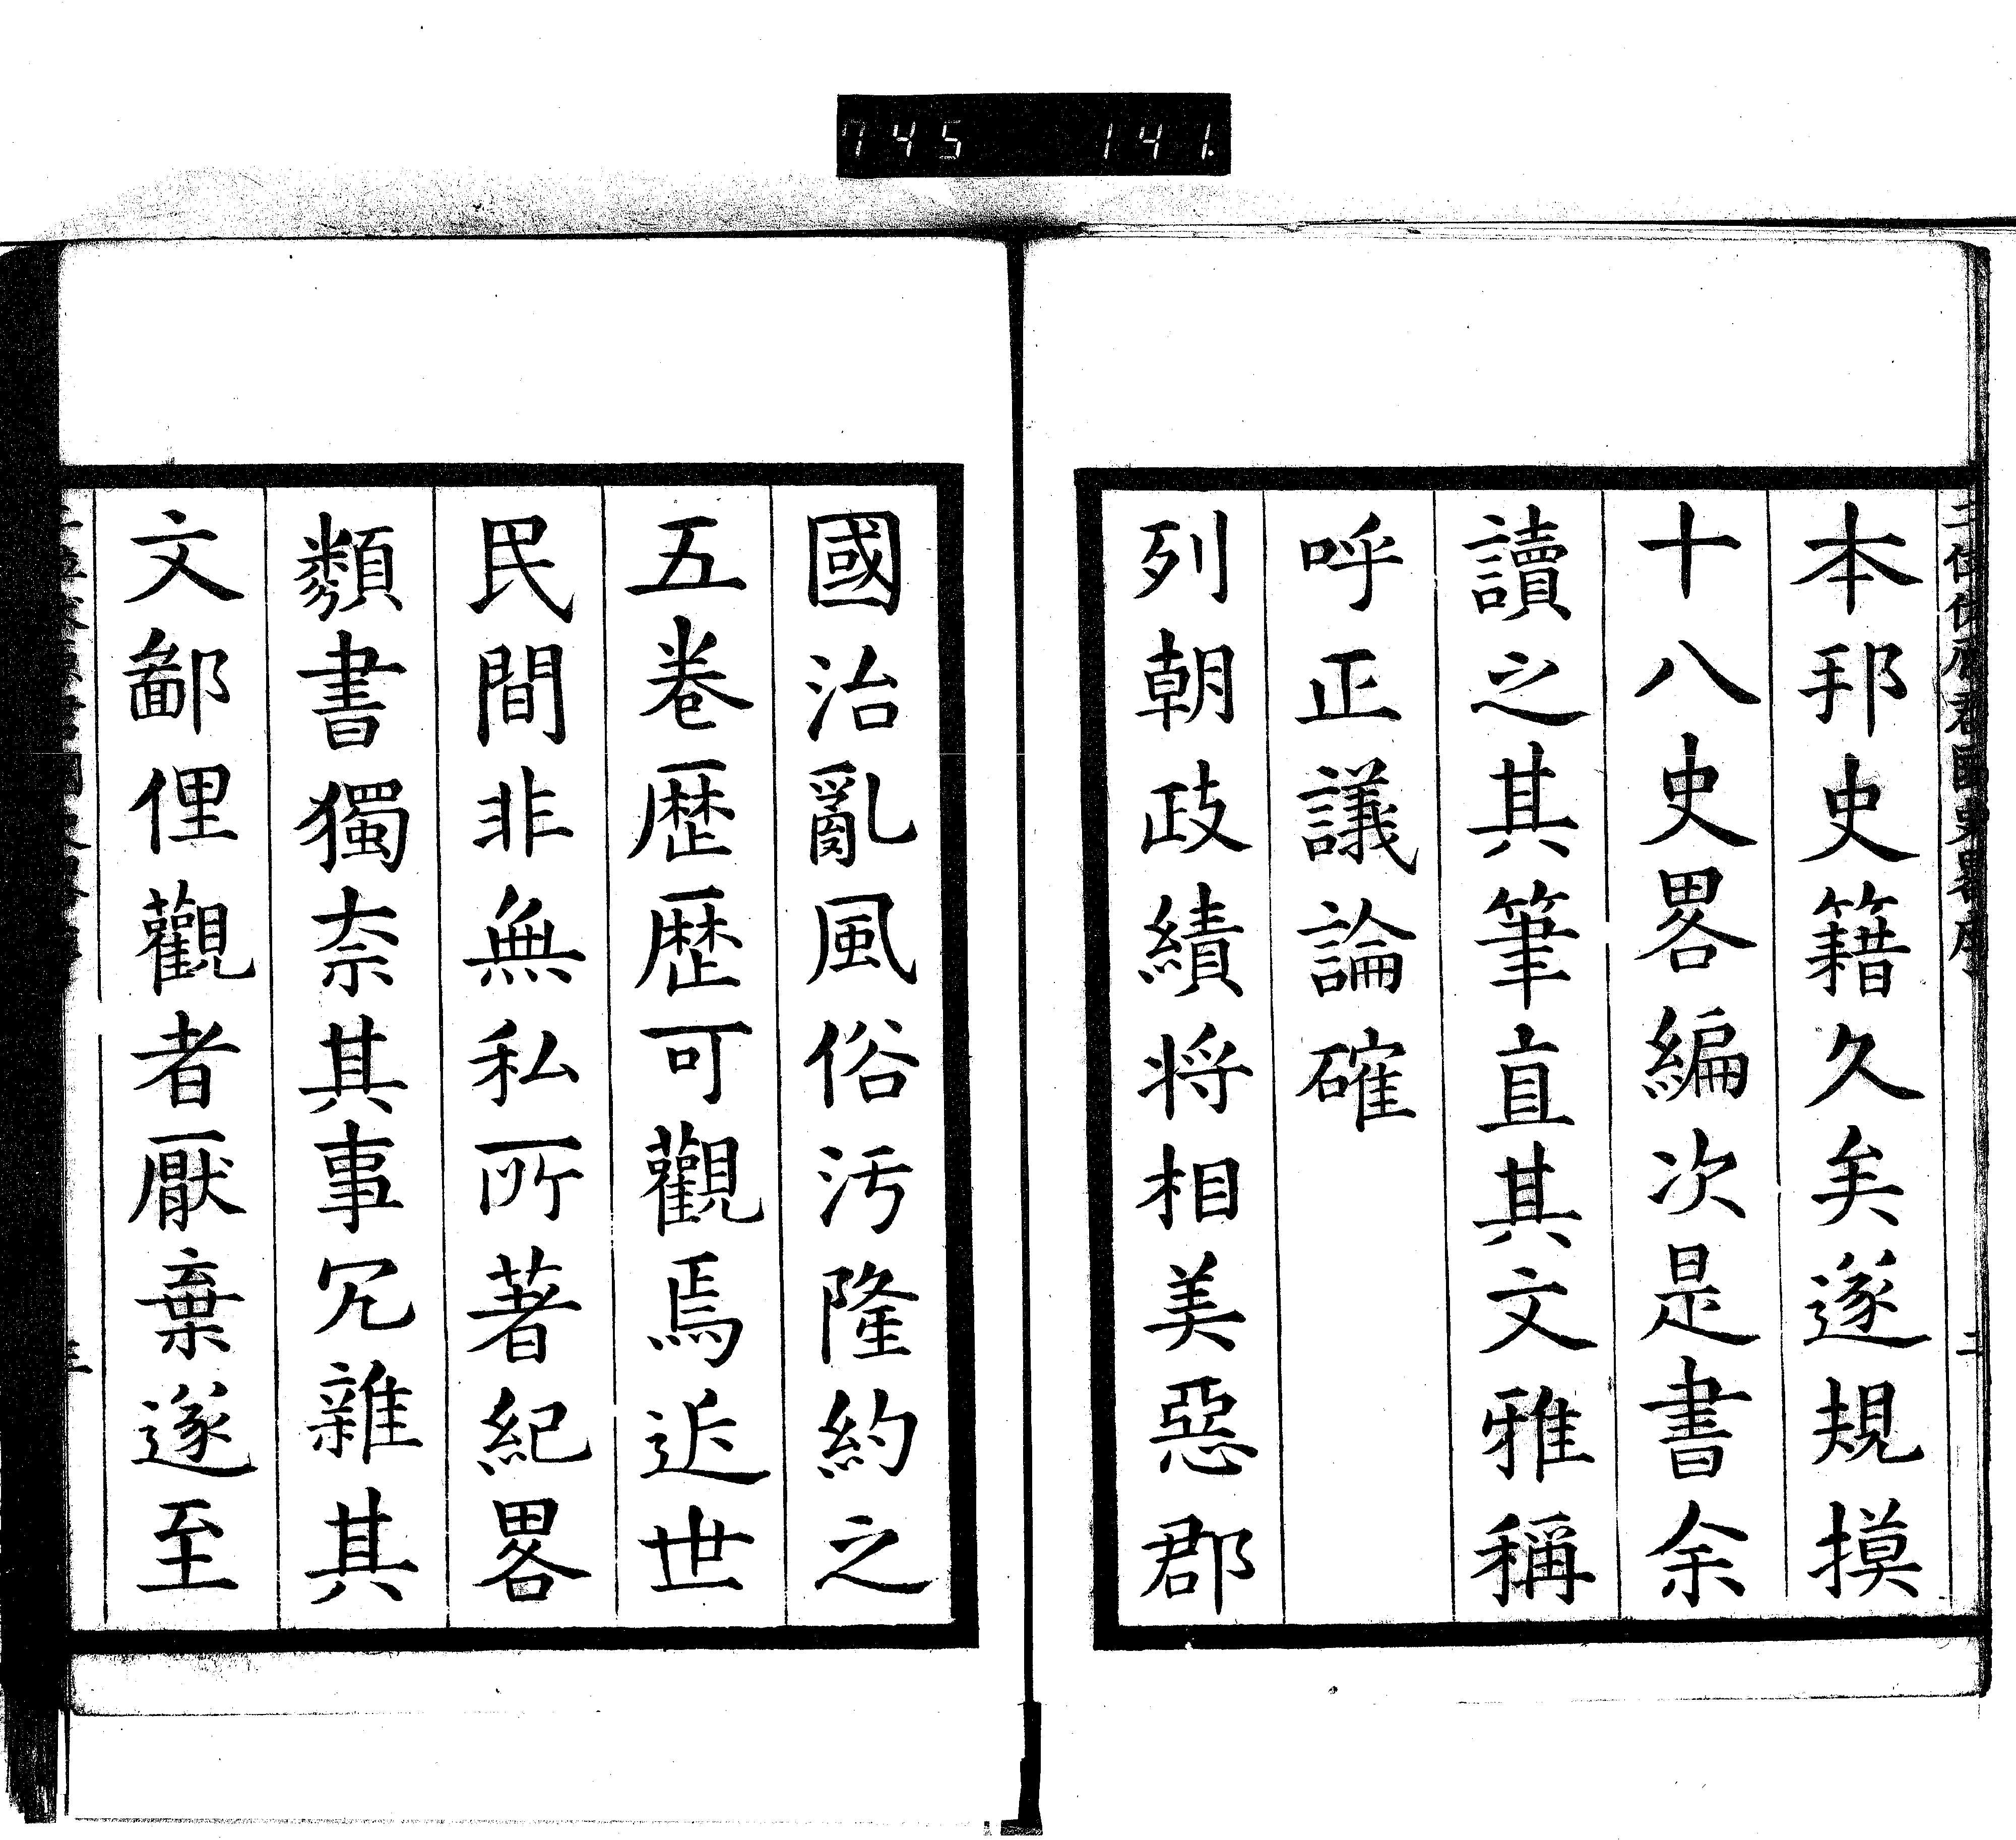 745 141
本邦史籍久矣遂規摸
十八史畧編次是書余
讀之其筆直其文雅稱
呼正議論確
列朝政績将相美惡郡
國治亂風俗汚隆約之
五卷歴歴可觀焉近世
民間非無私所著紀畧
類書獨柰其事冗雜其
文鄙俚觀者厭棄遂至